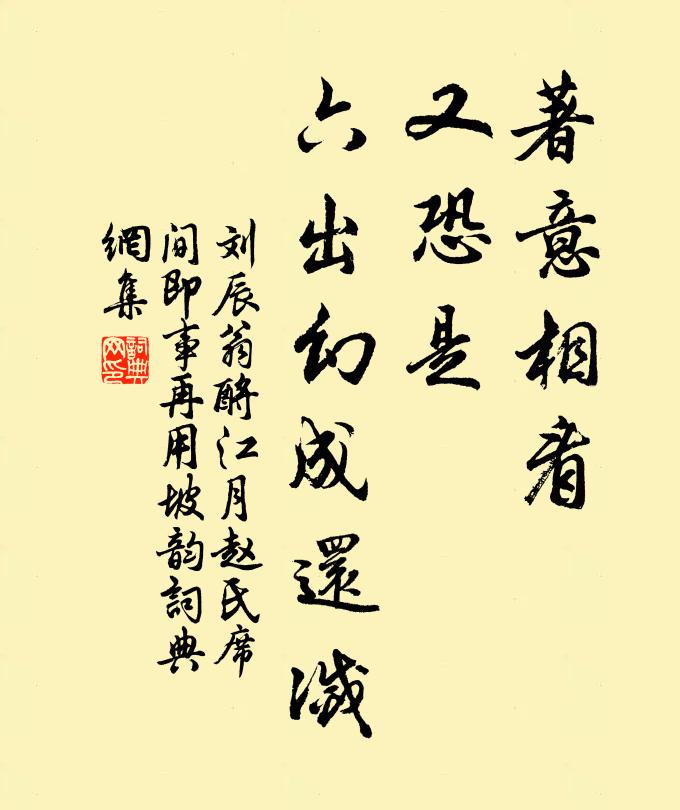 著意相看
又恐是
六出幻成還滅
刘辰翁酹江月赵氏席
间即事再用坡韵詞典
網集
詞典
网印